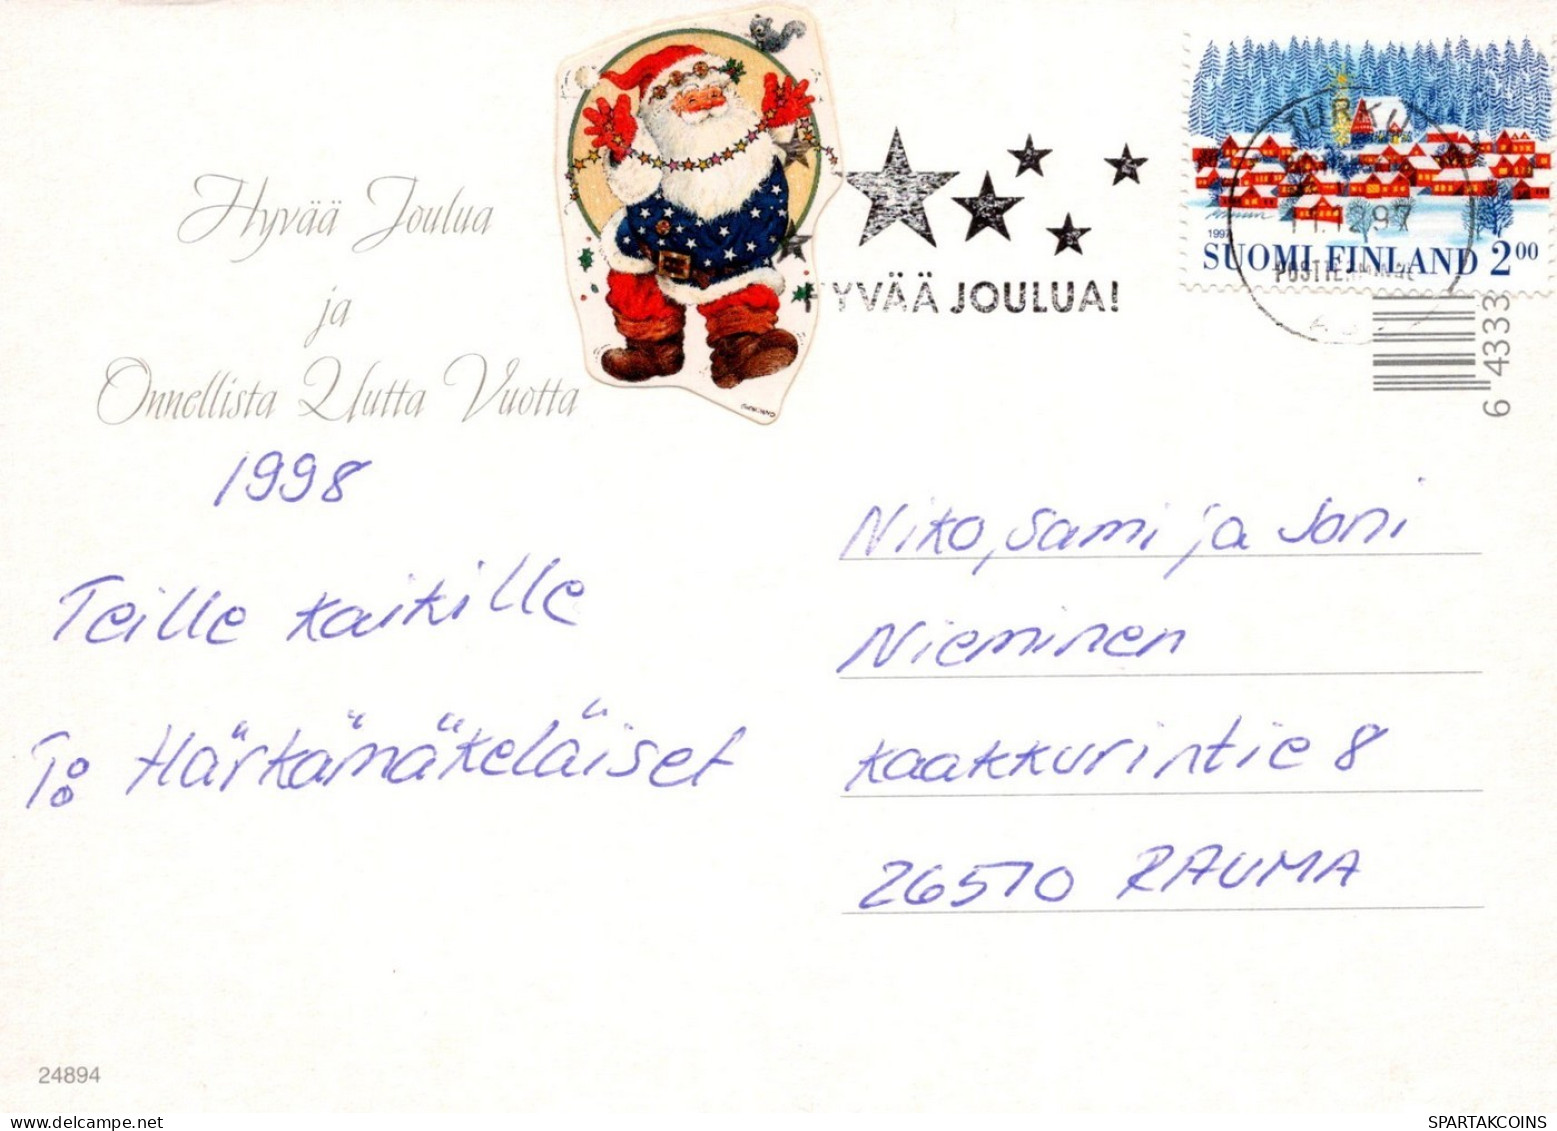 Hyvää Joulua
ja
Onnellista Uutta Vuotta
1998
Teille kaikille
T: Härkämäkeläiset
HYVÄÄ JOULUA!
TURKU
11.12.97
1997
SUOMI FINLAND 200
6 4333
Niko, Sami ja Joni
Nieminen
Kaakkurintie 8
26510 RAUMA
24894
SPARTAKCOINS